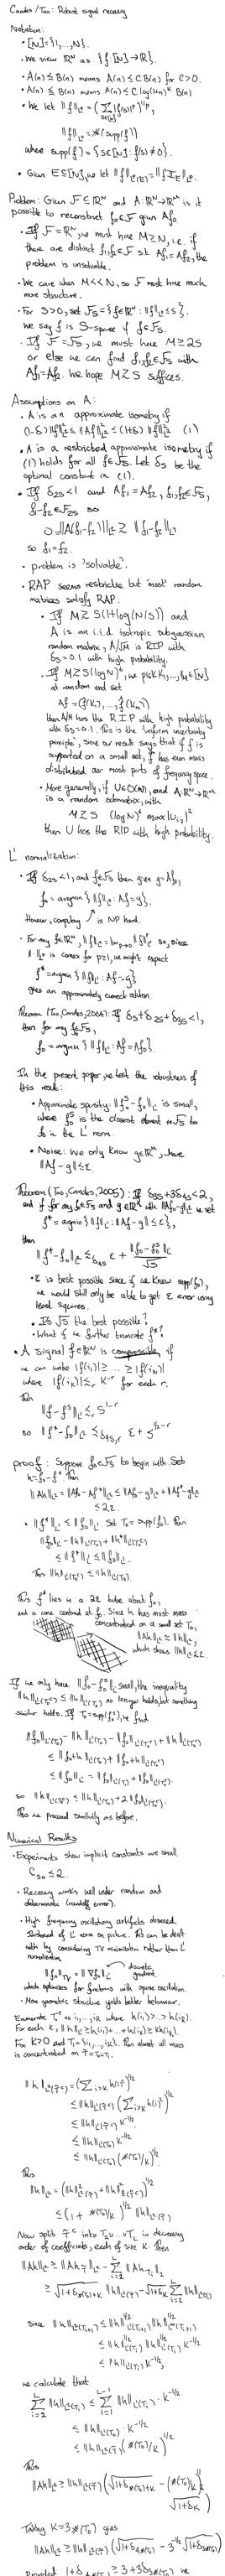 Candes/Tao: Robust signal recovery
Notation:
• [N]={1,...,N}.
• We view ℝᴺ as {f:[N]→ℝ}.
• A(n)≲B(n) means A(n)≤C B(n) for C>0.
• We let ‖f‖_{Lᵖ}=(Σ|f(s)|ᵖ)^{1/p},
‖f‖_{L⁰}=#(supp(f))
where supp(f)={s∈[N]: f(s)≠0}.
• Given E⊂[N], we let ‖f‖_{Lᵖ(E)}=‖f 𝕀_E‖_{Lᵖ}.
Problem: Given F⊂ℝᴺ and A:ℝᴺ→ℝᴹ is it
possible to reconstruct f₀∈F given Af₀.
• If F=ℝᴺ, we must have M≥N, i.e. if
there are distinct f₁,f₂∈F st. Af₁=Af₂, the
problem is unsolvable.
• We care when M<<N, so F must have much
more structure.
• For S>0, set F_S={f∈ℝᴺ: ‖f‖_{L⁰}≤S}.
We say f is S-sparse if f∈F_S.
• If F=F_S, we must have M≥2S
or else we can find f₁,f₂∈F_S with
Af₁=Af₂. We hope M≳S suffices.
Assumptions on A:
• A is an approximate isometry if
(1-δ)‖f‖²_{L²}≤‖Af‖²_{L²}≤(1+δ)‖f‖²_{L²} (1)
• A is a restricted approximate isometry if
(1) holds for all f∈F_S. Let δ_S be the
optimal constant in (1).
• If δ_{2S}<1 and Af₁=Af₂, f₁,f₂∈F_S,
f₁-f₂∈F_{2S} so
0=‖A(f₁-f₂)‖_{L²}≳‖f₁-f₂‖_{L²}
so f₁=f₂.
• problem is 'solvable'.
• RAP seems restrictive but 'most' random
matrices satisfy RAP:
• If M≳S(1+log(N/S)) and
A is an i.i.d. isotropic subgaussian
random matrix, A/√M is RIP with
δ_S=0.1 with high probability.
at random and set
then A/√M has the R.I.P with high probability
with δ_S=0.1. This is the 'uniform uncertainty
principle', since our result says that if f is
supported on a small set, f has even mass
distributed over most parts of frequency space.
• More generally, if U∈O(N), and A:ℝᴺ→ℝᴹ
is a random submatrix, with
then U has the RIP with high probability.
L¹ normalization:
• If δ_{2S}<1, and f₀∈F_S then given g=Af₀,
f₀=argmin{‖f‖_{L⁰}: Af=g}.
However, computing is NP hard.
f*=argmin{‖f‖_{L¹}: Af=g}
gives an approximately correct solution.
Theorem (Tao, Candes, 2004): If δ_S+δ_{2S}+δ_{3S}<1,
then for any f₀∈F_S,
f₀=argmin{‖f‖_{L¹}: Af=Af₀}.
In the present paper, we test the robustness of
this result:
• Approximate sparsity: ‖f₀ˢ-f₀‖_{L¹} is small,
where f₀ˢ is the closest element in F_S to
f₀ in the L¹ norm.
• Noise: We only know g∈ℝᴹ, where
‖Af-g‖≤ε.
Theorem (Tao, Candes, 2005): If δ_{3S}+3δ_{4S}<2,
f*=argmin{‖f‖_{L¹}: ‖Af-g‖≤ε},
then
‖f*-f₀‖_{L²}≲_{δ_{4S}} ε+‖f₀-f₀ˢ‖_{L¹}/√S
• ε is best possible since if we knew supp(f₀),
we would still only be able to get ε error using
least squares.
• Is √S the best possible?
• What if we further truncate f*?
• A signal f∈ℝᴺ is compressible if
we can write |f(i₁)|≥...≥|f(i_N)|
where |f(i_K)|≲_r K^{-r} for each r.
Then
‖f-fˢ‖_{L¹}≲_r S^{1-r}
so ‖f*-f₀‖_{L²}≲_{δ_{4S},r} ε+S^{1/2-r}
proof: Suppose f₀∈F_S to begin with. Set
h=f₀-f*. Then
‖Ah‖_{L²}=‖Af₀-Af*‖_{L²}≤‖Af₀-g‖_{L²}+‖Af*-g‖_{L²}
≤2ε.
• ‖f*‖_{L¹}≤‖f₀‖_{L¹}. Set T₀=supp(f₀). Then
‖f₀‖_{L¹}-‖h‖_{L¹(T₀)}+‖h‖_{L¹(T₀ᶜ)}
≤‖f*‖_{L¹}≤‖f₀‖_{L¹}.
Thus ‖h‖_{L¹(T₀ᶜ)}≤‖h‖_{L¹(T₀)}.
Thus f* lies in a 2ε tube about f₀,
and a cone centred at f₀. Since h has most mass
concentrated on a small set T₀,
‖Ah‖_{L²}≈‖h‖_{L²},
which shows ‖h‖_{L²}≲ε.
If we only have ‖f₀-f₀ˢ‖_{L¹} small, the inequality
‖h‖_{L¹(T₀ᶜ)}≤‖h‖_{L¹(T₀)} no longer holds, but something
similar holds. If T₀=supp(f₀ˢ), we find
‖f₀‖_{L¹(T₀)}-‖h‖_{L¹(T₀)}-‖f₀‖_{L¹(T₀ᶜ)}+‖h‖_{L¹(T₀ᶜ)}
≤‖f₀+h‖_{L¹(T₀)}+‖f₀+h‖_{L¹(T₀ᶜ)}
≤‖f₀‖_{L¹}=‖f₀‖_{L¹(T₀)}+‖f₀‖_{L¹(T₀ᶜ)}.
so ‖h‖_{L¹(T₀ᶜ)}≤‖h‖_{L¹(T₀)}+2‖f₀‖_{L¹(T₀ᶜ)}.
Thus we proceed similarly as before.
Numerical Results
• Experiments show implicit constants are small.
• Recovery works well under random and
deterministic (roundoff error).
• High frequency oscillatory artifacts observed.
with by considering TV minimization rather than L¹
normalization
‖f₀‖_{TV}=‖∇f₀‖_{L¹} discrete
gradient
which optimises for functions with sparse oscillation.
• More geometric structure yields better behaviour.
Enumerate T₀ᶜ as i₁,...,i_L where h(i₁)>...>h(i_L).
For each k, ‖h‖_{L¹}≥h(i₁)+...+h(i_k)≥kh(i_k).
is concentrated on T̃=T₀∪T₁.
‖h‖_{L²(T̃ᶜ)}=(Σ_{i>K} h(i)²)^{1/2}
≤‖h‖_{L¹(T₀ᶜ)}K^{-1/2}
≤‖h‖_{L¹(T₀)}K^{-1/2}
≤‖h‖_{L²(T₀)}(#(T₀)/K)^{1/2}
Thus
‖h‖_{L²}=(‖h‖²_{L²(T̃)}+‖h‖²_{L²(T̃ᶜ)})^{1/2}
≤(1+#(T₀)/K)^{1/2}‖h‖_{L²(T̃)}
Now split T̃ᶜ into T₂∪...∪T_L in decreasing
order of coefficients, each of size K. Then
‖Ah‖_{L²}≥‖Ah_{T̃}‖_{L²}-Σ_{i=2}^{L}‖Ah_{T_i}‖_{L²}
since ‖h‖_{L²(T_{i+1})}≤‖h‖^{1/2}_{L¹(T_{i+1})}‖h‖^{1/2}_{L^∞(T_{i+1})}
≤‖h‖_{L¹(T_i)}K^{-1/2},
we calculate that
Σ_{i=2}^{L}‖h‖_{L²(T_i)}≤Σ_{i=1}^{L-1}‖h‖_{L¹(T_i)}·K^{-1/2}
≤‖h‖_{L¹(T₀)}·K^{-1/2}
≤‖h‖_{L²(T̃)}(#(T₀)/K)^{1/2}
Thus
Taking K=3#(T₀) gives